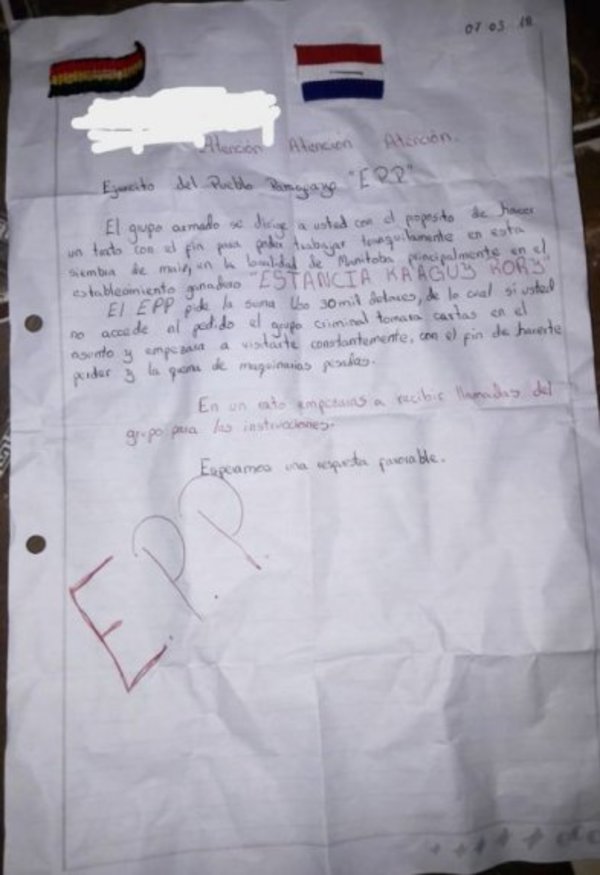 07 03 18
Atención Atención Atención.
Ejercito del Pueblo Paraguayo "EPP"
El grupo armado se dirige a usted con el proposito de hacer
un trato con el fin para poder trabajar tranquilamente en esta
siembra de maiz, en la localidad de Manitoba principalmente en el
establecimiento ganadero "ESTANCIA KAAGUY RORY"
El EPP pide la suma Uso 30 mil dolares, de lo cual si usted
no accede al pedido el grupo criminal tomara cartas en el
asunto y empezara a visitarte constantemente, con el fin de hacerte
perder y la quema de maquinarias pesadas.
En un rato empezaras a recibir llamadas del
grupo para las instrucciones.
Esperamos una respuesta favorable.
E.P.P.